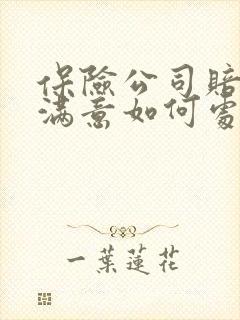 保險公司賠
滿意如何處
一葉蓮花